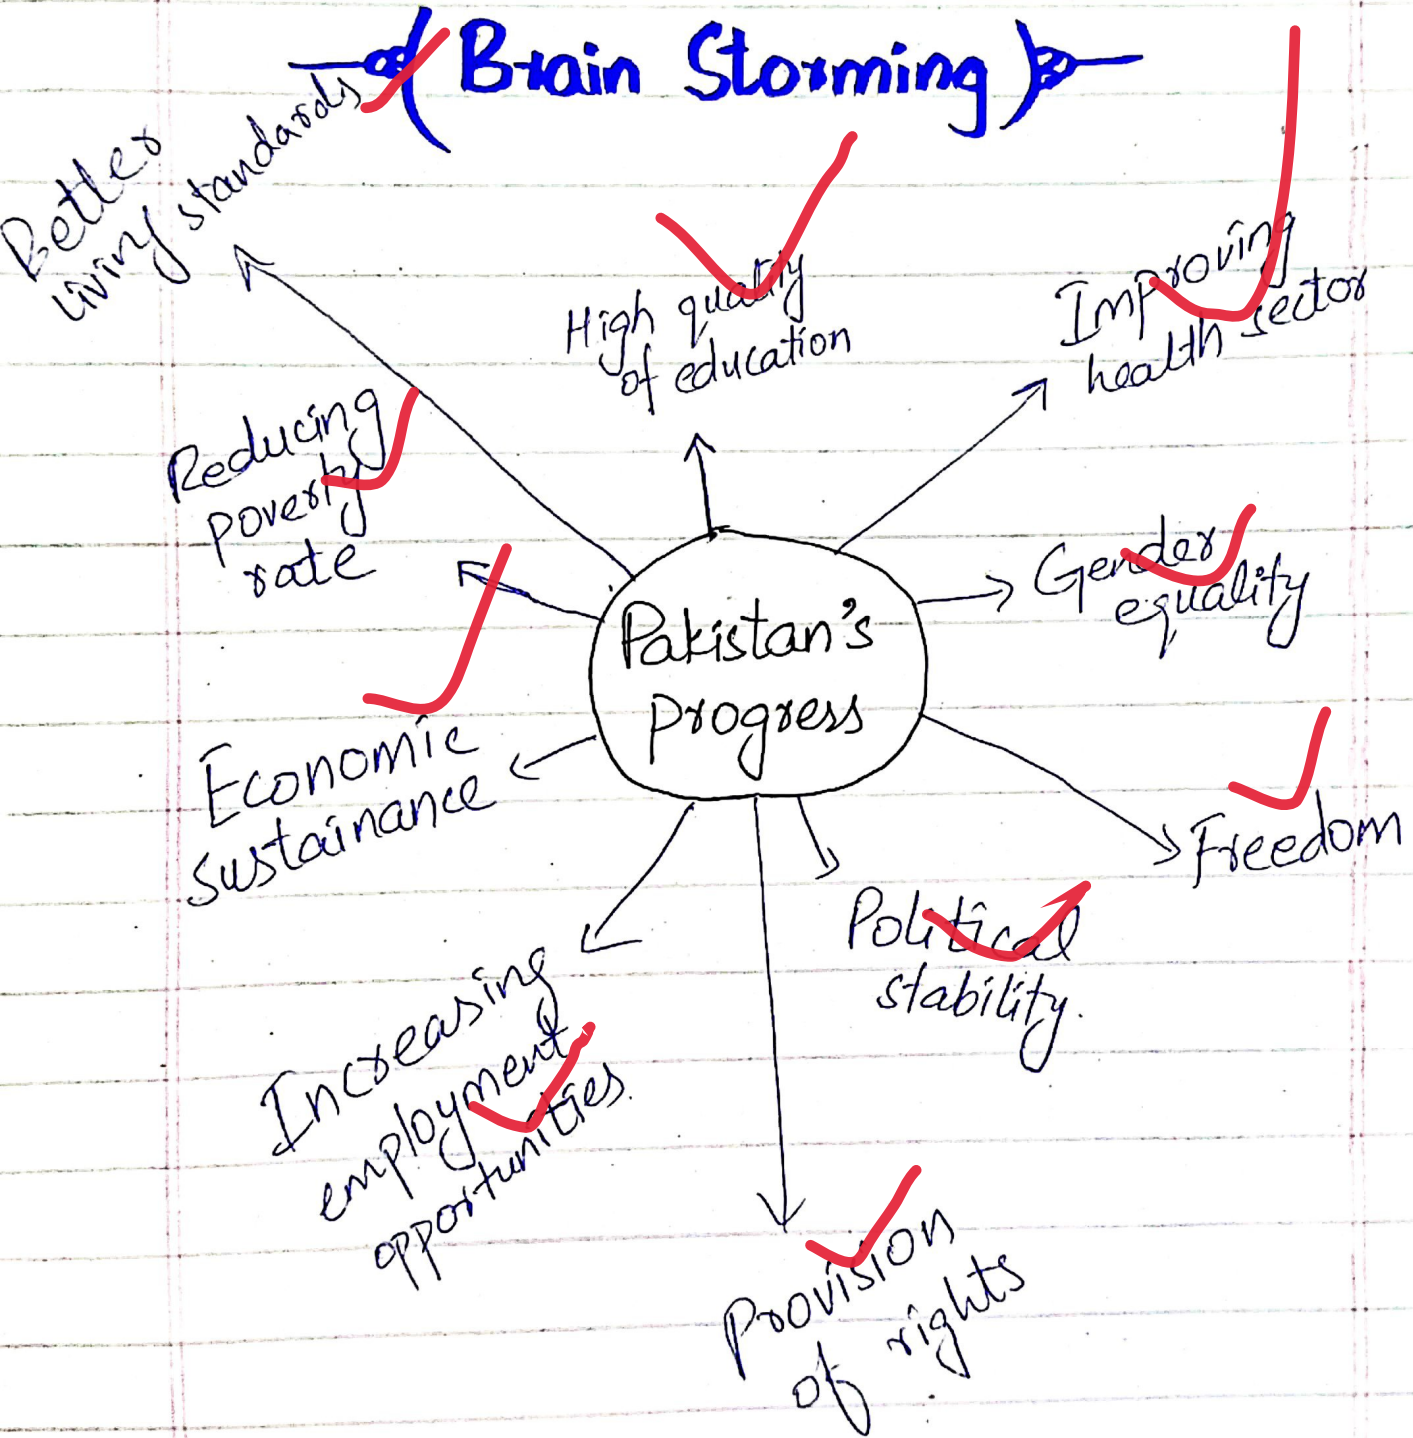 Brain Storming
Better
living standards
High quality
of education
Improving
health sector
Reducing
poverty
rate
Gender
equality
Pakistan's
progress
Economic
sustainance
Freedom
Political
stability.
Increasing
employment
opportunities.
Provision
of rights